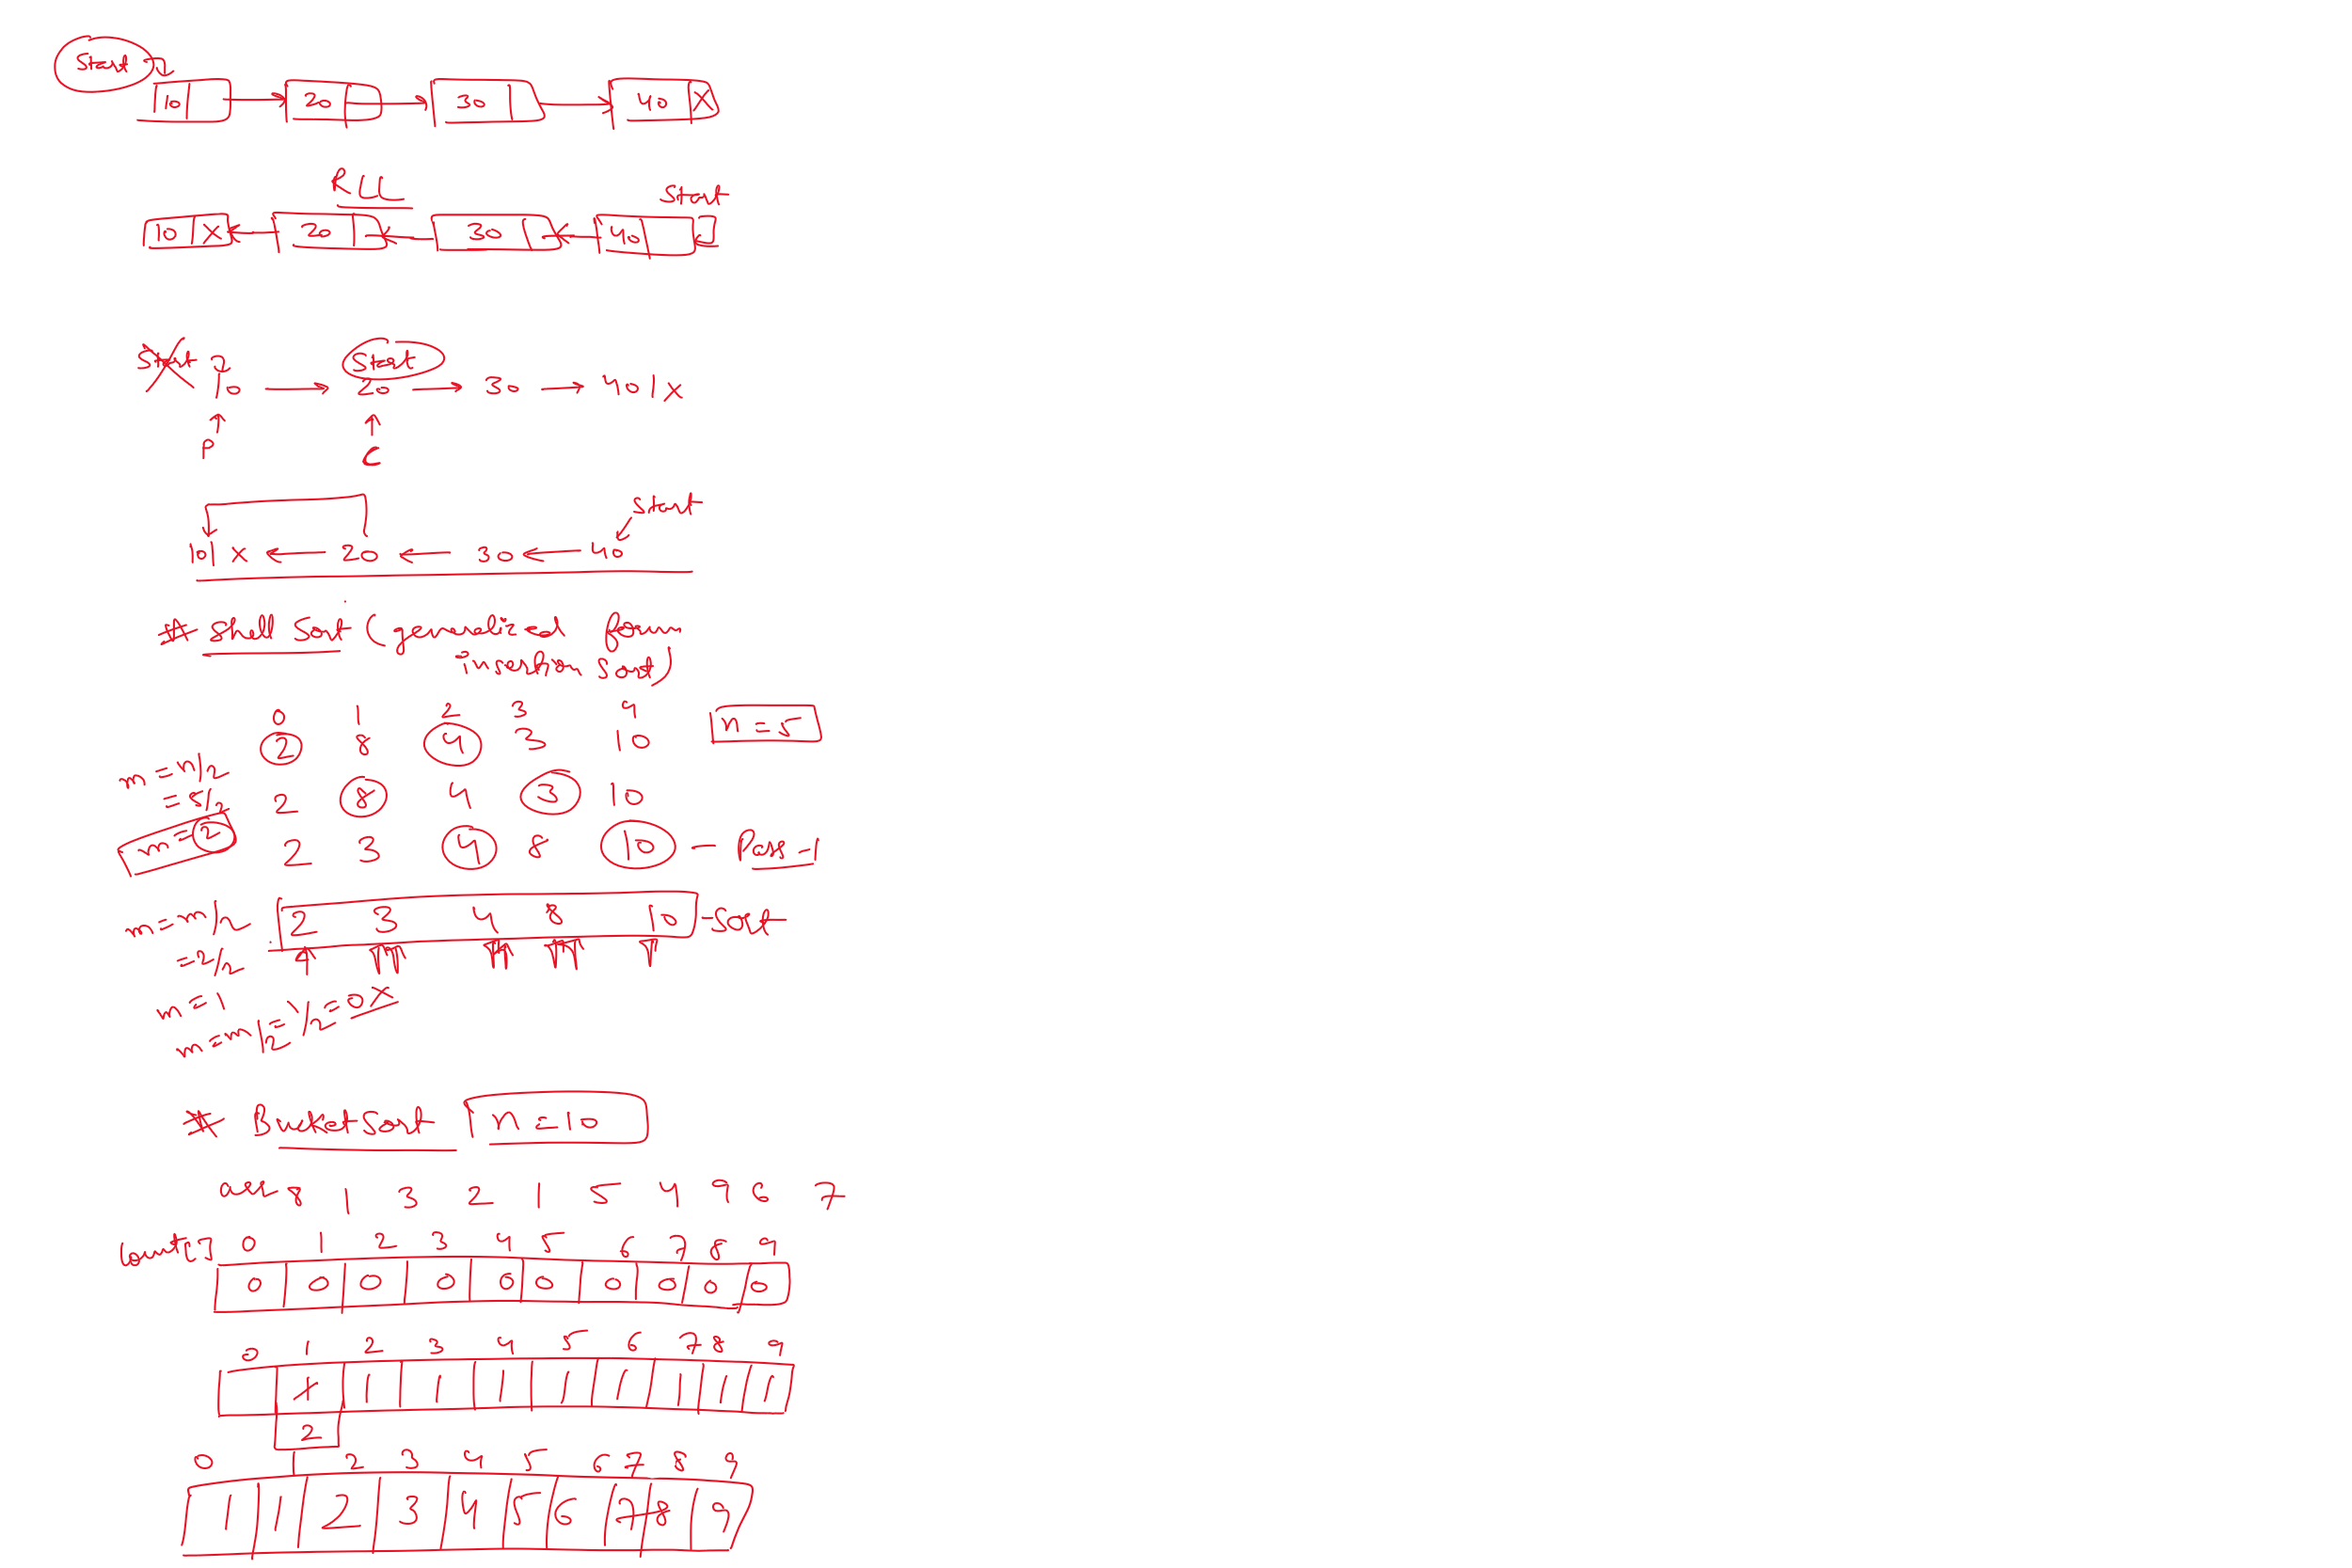 Start
10 20 30 40 X
RLL
Start
10 X 20 30 40
Start Start
10 20 30 40 | X
P C
Start
10 | X 20 30 40
* Shell Sort (generalized form
insertion sort)
0 1 2 3 4
2 8 4 3 10 n = 5
m = n/2
= 5/2 2 8 4 3 10
m = 2 2 3 4 8 10 - Pass-1
m = m/2 2 3 4 8 10 - Sort
= 2/2
m = 1
m = m/2 = 1/2 = 0 X
* Bucket Sort n = 10
arr 8 1 3 2 1 5 4 9 6 7
Count[] 0 1 2 3 4 5 6 7 8 9
0 0 0 0 0 0 0 0 0 0
0 1 2 3 4 5 6 7 8 9
1 1 1 1 1 1 1 1 1
2
0 1 2 3 4 5 6 7 8 9
1 1 2 3 4 5 6 7 8 9